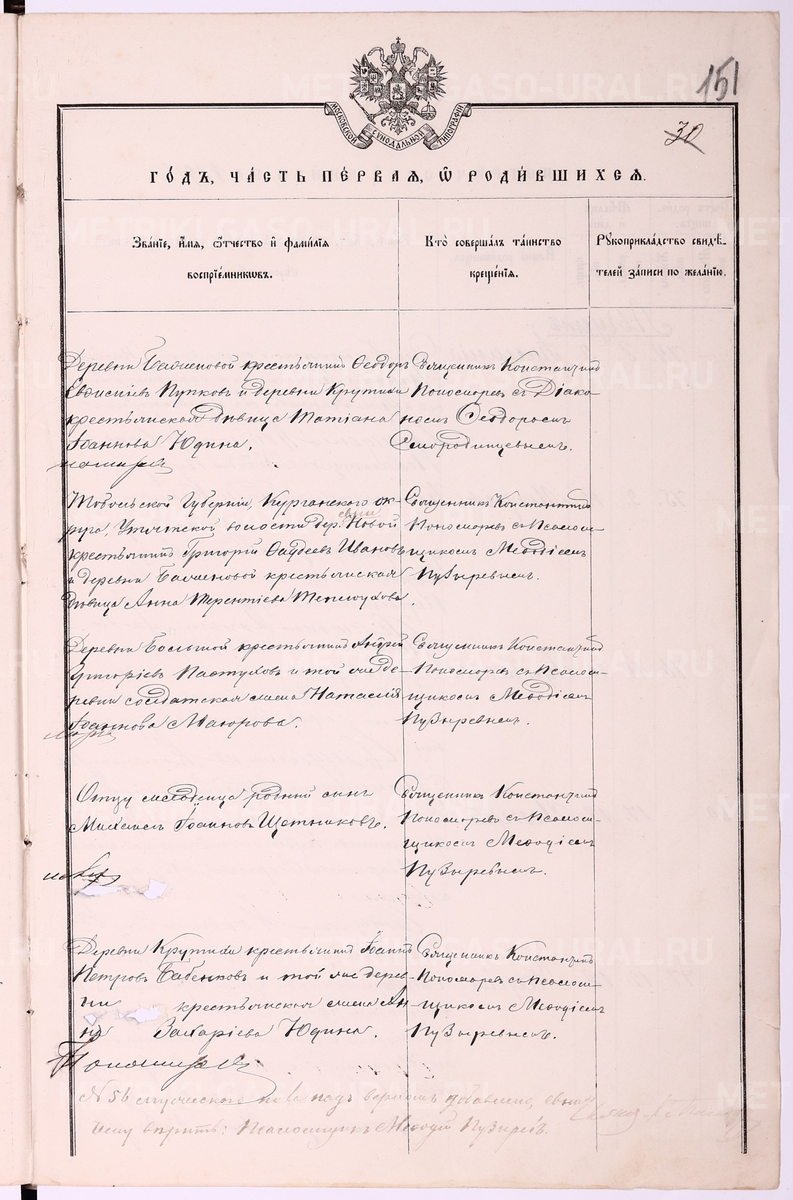 151
30
МОСКОВСКОЙ СѴНОДАЛЬНОЙ ТИПОГРАФІИ
ГОДЪ, ЧАСТЬ ПЕРВАЯ, Ѿ РОДИВШИХСЯ.
Званіе, имя, отчество и фамилія воспріемниковъ.
Кто совершалъ таинство крещенія.
Рукоприкладство свидѣтелей записи по желанію.
Деревни крестьянинъ Ѳеодоръ
Пупковъ и деревни Крутихи
крестьянская дѣвица Татіана
Іоаннова Юдина.
Священникъ Константинъ
Пономаревъ съ Діако-
номъ Ѳеодоромъ
Смородинцевымъ.
Тобольской Губерніи, Курганскаго ок-
руга, волости дер. Новой
крестьянинъ Григорій Ѳаддеевъ Ивановъ
и деревни крестьянская
дѣвица Анна Терентіева
Священникъ Константинъ
Пономаревъ съ Псалом-
щикомъ Меѳодіемъ
Пузыревымъ.
Деревни Большой крестьянинъ Андрей
Григоріевъ Пастуховъ и той же де-
ревни солдатская жена Наталія
Іоаннова Маюрова.
Священникъ Константинъ
Пономаревъ съ Псалом-
щикомъ Меѳодіемъ
Пузыревымъ.
Отцу младенца родный сынъ
Михаилъ Іоанновъ Щетниковъ.
Священникъ Константинъ
Пономаревъ съ Псалом-
щикомъ Меѳодіемъ
Пузыревымъ.
Деревни Крутихи крестьянинъ Іоаннъ
Петровъ Бабенковъ и той же дерев-
ни крестьянская жена Ан-
на Захаріева Юдина.
Священникъ Константинъ
Пономаревъ съ Псалом-
щикомъ Меѳодіемъ
Пузыревымъ.
Пономаревъ
надъ добавлено,
вѣрить: Псаломщикъ Меѳодій Пузыревъ.